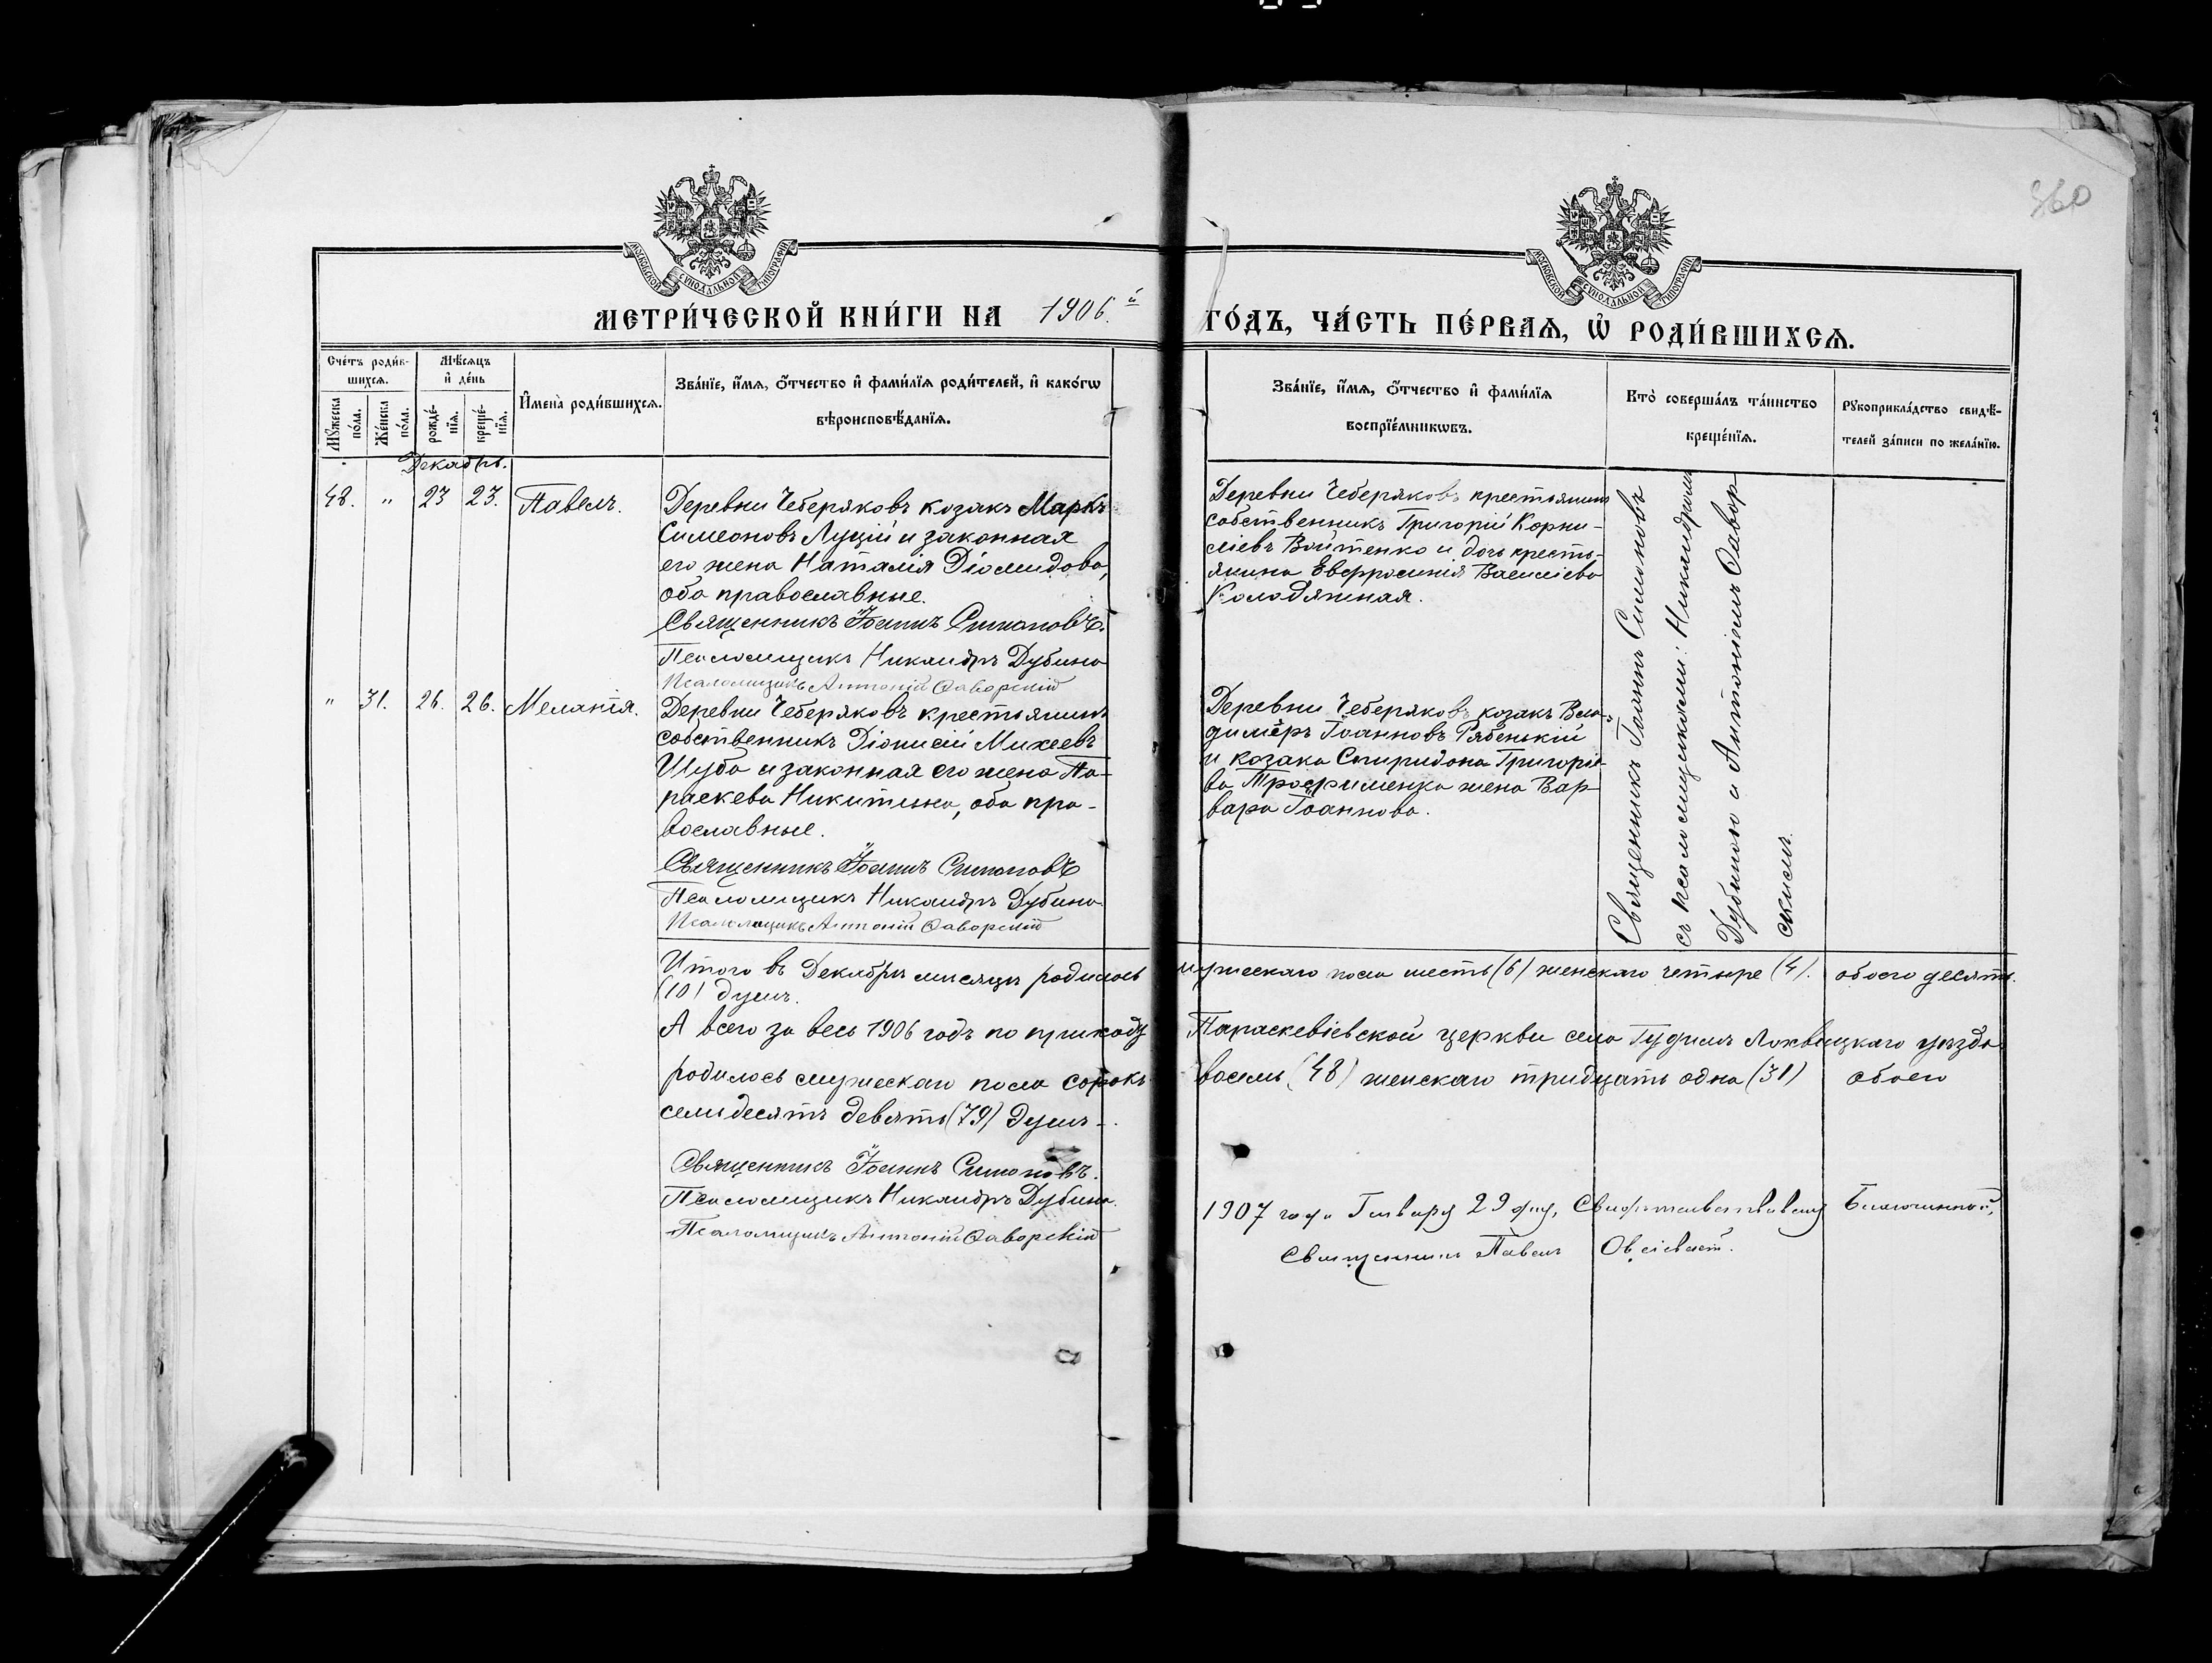 360
МОСКОВСКОЙ СѴНОДАЛЬНОЙ ТИПОГРАФІИ
МОСКОВСКОЙ СѴНОДАЛЬНОЙ ТИПОГРАФІИ
МЕТРИ́ЧЕСКОЙ КНИ́ГИ НА 1906.й
ГО́ДЪ, ЧА́СТЬ ПЕ́РВАѦ, Ѡ҆ РОДИ́ВШИХСѦ.
Сче́тъ роди́в-
шихсѧ.
Мꙋ́жеска
по́ла.
Же́нска
по́ла.
Мѣ́сѧцъ
и҆ де́нь
рожде́-
нїѧ.
креще́-
нїѧ.
И҆мена̀ роди́вшихсѧ.
Зва́нїе, и҆́мѧ, ѻ҆́тчество и҆ фами́лїѧ роди́телей, и҆ како́гѡ
вѣроисповѣ́данїѧ.
Зва́нїе, и҆́мѧ, ѻ҆́тчество и҆ фами́лїѧ
воспрїе́мникѡвъ.
Кто̀ соверша́лъ та́инство
креще́нїѧ.
Рꙋкоприкла́дство свидѣ́-
телей за́писи по жела́нїю.
Декабрь.
48. „ 23 23. Павелъ.
Деревни Чеберяковъ козакъ Маркъ
Симеоновъ Луцій и законная
его жена Наталія Діомидова,
оба православные.
Священникъ Іоаннъ Симоновъ.
Псаломщикъ Никандръ Дубина
Псаломщикъ Антоній Ѳаворскій
Деревни Чеберяковъ крестьянинъ
собственникъ Григорій Корни-
ліевъ Войтенко и дочь кресть-
янина Евфросинія Васіліева
Колодяжная.
Священникъ Іоаннъ Симоновъ
съ псаломщиками: Никандромъ
Дубиною и Антоніемъ Ѳавор
скимъ.
„ 31. 26. 26. Меланія.
Деревни Чеберяковъ крестьянинъ
собственникъ Діонисій Михеевъ
Шуба и законная его жена Па-
раскева Никитина, оба пра-
вославные.
Священникъ Іоаннъ Симоновъ
Псаломщикъ Никандръ Дубина
Псаломщикъ Антоній Ѳаворскій
Деревни Чеберяковъ козакъ Вла-
димѣръ Іоанновъ Рябенькій
и козака Спиридона Григоріе-
ва Трофименка жена Вар-
вара Іоаннова.
Итого въ Декабрѣ мѣсяцѣ родилось мужескаго пола шесть (6) женскаго четыре (4). обоего десять
(10) душъ.
А всего за весь 1906 годъ по приходу Параскевіевской церкви села Гудимъ Лохвицкаго уѣзда
родилось мужескаго пола сорокъ восемь (48) женскаго тридцать одна (31) обоего
семьдесятъ девять (79) душъ.
Священникъ Іоаннъ Симоновъ.
Псаломщикъ Никандръ Дубина.
Псаломщикъ Антоній Ѳаворскій
1907 года Января 29 дня, Свидѣтельствовалъ Благочинный,
Священникъ Павелъ